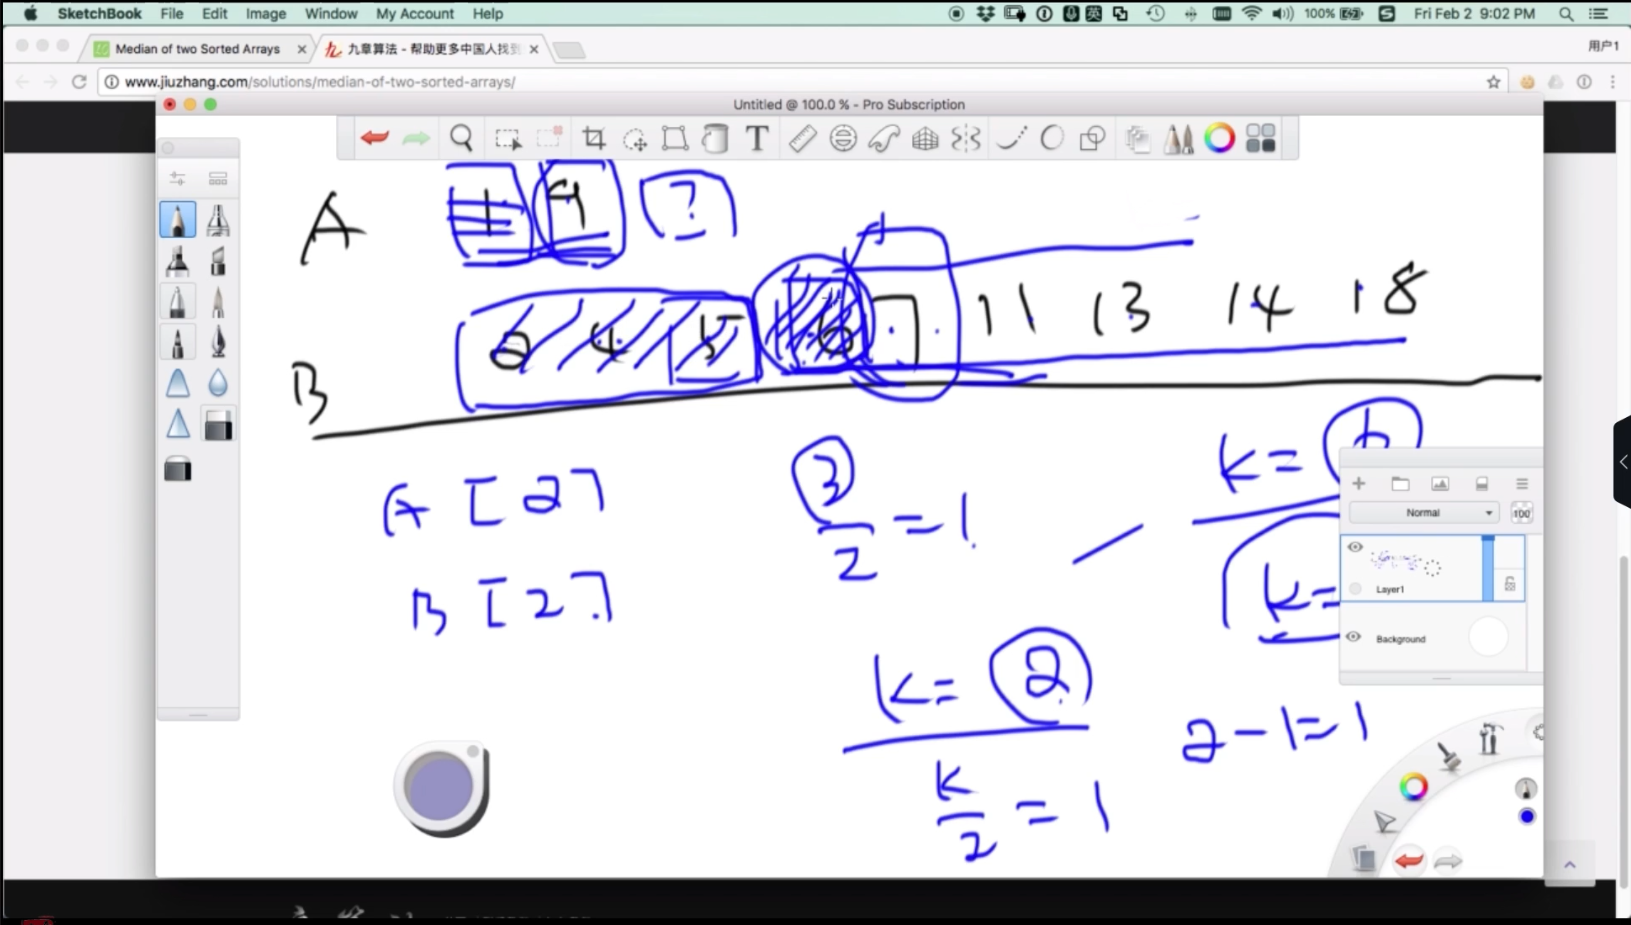 SketchBook File Edit Image Window My Account Help 100% Fri Feb 2 9:02 PM
Median of two Sorted Arrays 九章算法 - 帮助更多中国人找到 用户1
www.jiuzhang.com/solutions/median-of-two-sorted-arrays/
Untitled @ 100.0 % - Pro Subscription
A 1 9 ?
B 2 4 5 6 7 11 13 14 18
A [2] 3/2 = 1 k=6
B [2] k=
k=2 2-1=1
k/2 = 1
Normal 100
Layer1
Background